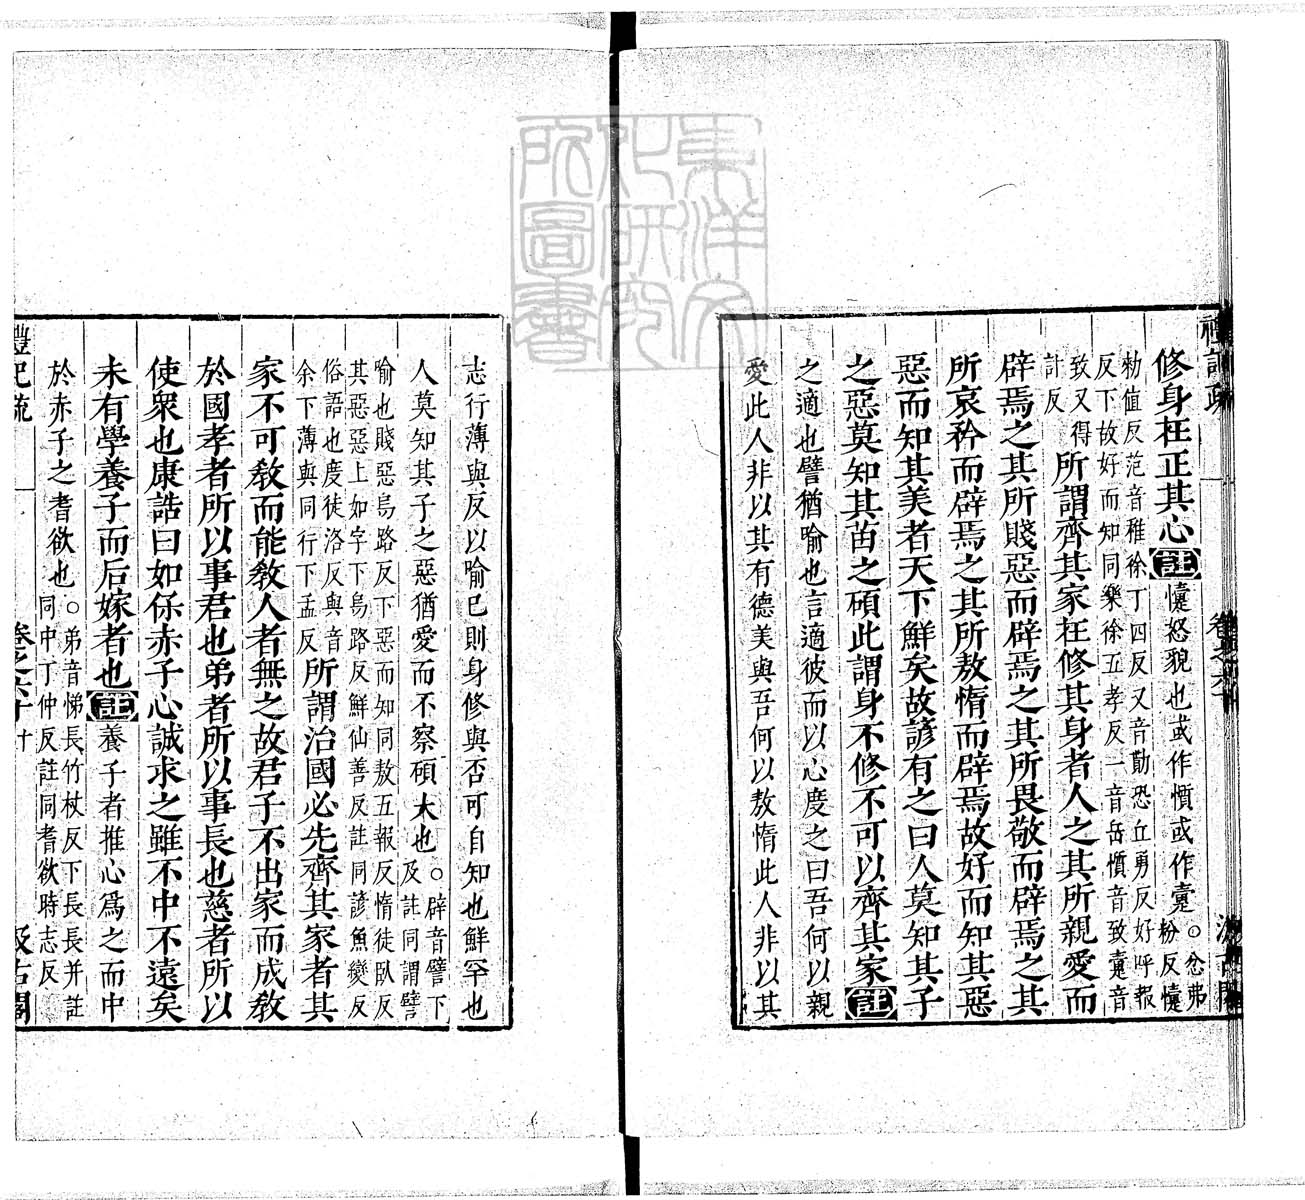 修身在正其心註懥怒貌也或作懫或作疐○忿弗粉反懥
勑值反范音稚徐丁四反又音勤恐丘勇反好呼報
反下故好而知同樂徐五孝反一音岳懫音致疐音
致又得計反所謂齊其家在修其身者人之其所親愛而
辟焉之其所賤惡而辟焉之其所畏敬而辟焉之其
所哀矜而辟焉之其所敖惰而辟焉故好而知其惡
惡而知其美者天下鮮矣故諺有之曰人莫知其子
之惡莫知其苗之碩此謂身不修不可以齊其家註
之適也譬猶喻也言適彼而以心度之曰吾何以親
愛此人非以其有德美與吾何以敖惰此人非以其
志行薄與反以喻已則身修與否可自知也鮮罕也
人莫知其子之惡猶愛而不察碩大也○辟音譬下及註同謂譬
喻也賤惡烏路反下惡而知同敖五報反惰徒臥反
其惡惡上如字下烏路反鮮仙善反註同諺魚變反
俗語也度徒洛反與音
余下薄與同行下孟反所謂治國必先齊其家者其
家不可敎而能敎人者無之故君子不出家而成敎
於國孝者所以事君也弟者所以事長也慈者所以
使眾也康誥曰如保赤子心誠求之雖不中不遠矣
未有學養子而后嫁者也註養子者推心爲之而中
於赤子之耆欲也○弟音悌長竹杖反下長長并註同中丁仲反註同耆欲時志反
禮記疏
卷之六十
十
汲古閣